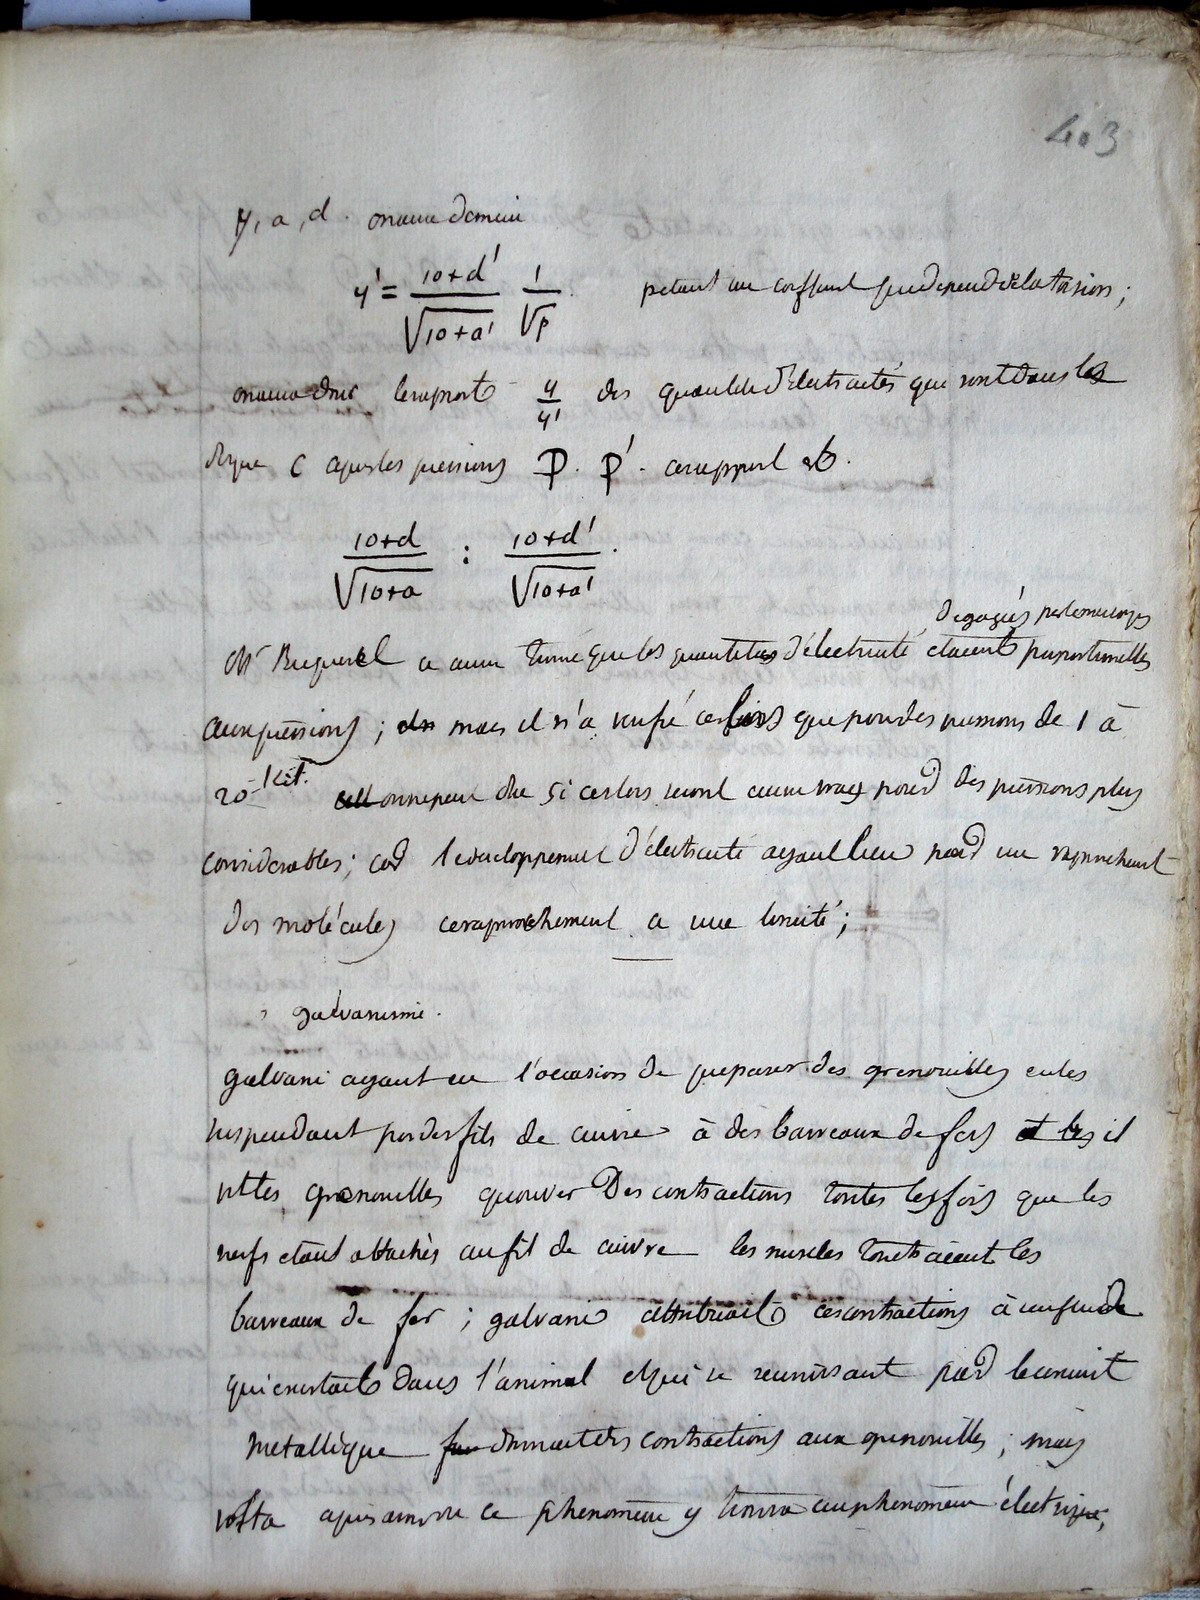 403
y, a, d. on aura de meme
y' = \frac{10+d'}{\sqrt{10+a'}} \frac{1}{\sqrt{p}}. p etant un coefficient qui depend de la torsion;
on aura donc le raport \frac{y}{y'} des quantités d'électricités qui sont dans le
disque C apres les pressions P. P'. ce rapport est.
\frac{10+d}{\sqrt{10+a}} : \frac{10+d'}{\sqrt{10+a'}}.
degagées par le meme corps
Mr Bequerel a ainsi trouvé que les quantités d'électricité etaient proportionnelles
aux pressions; mais il n'a verifié ces lois que pour des pressions de 1 à
20 Kil. on ne peut dire si ces lois seront aussi vraies pour des pressions plus
considerables; car le developpement d'électricité ayant lieu par un raprochement
des molécules ce raprochement a une limite;
galvanisme.
galvani ayant eu l'occasion de preparer des grenouilles en les
suspendant par des fils de cuivre à des barreaux de fers et les il
vit les grenouilles eprouver des contractions toutes les fois que les
nerfs etant attachés au fil de cuivre les muscles touchaient les
barreaux de fer; galvani attribuait ces contractions à un fluide
qui existait dans l'animal et qui se reunissant par le circuit
metallique donnait des contractions aux grenouilles; mais
volta apres avoir vu ce phenomene y trouva un phenomene électrique,